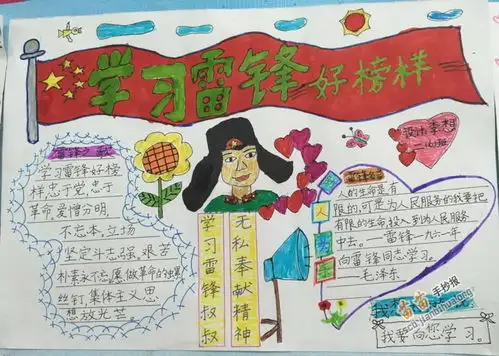 学习雷锋
好榜样
雷锋之歌
学习雷锋好榜
样忠于党忠于
革命爱憎分明,
不忘本,立场
坚定斗志强,艰苦
朴素永不忘,愿做革命的螺
丝钉,集体主义思
想放光芒。
学习雷锋叔叔
无私奉献精神
设计李想
二(6)班
人的生命是有
限的,可是为人民服务的我要把
有限的生命,投入到为人民服务
中去。——雷锋一九六一年
向雷锋同志学习。
——毛泽东
我
苗苗手抄报
我要向您学习。